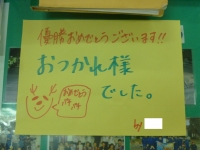 優勝おめでとうございます!!
おつかれ様
でした。
おめでとう
by